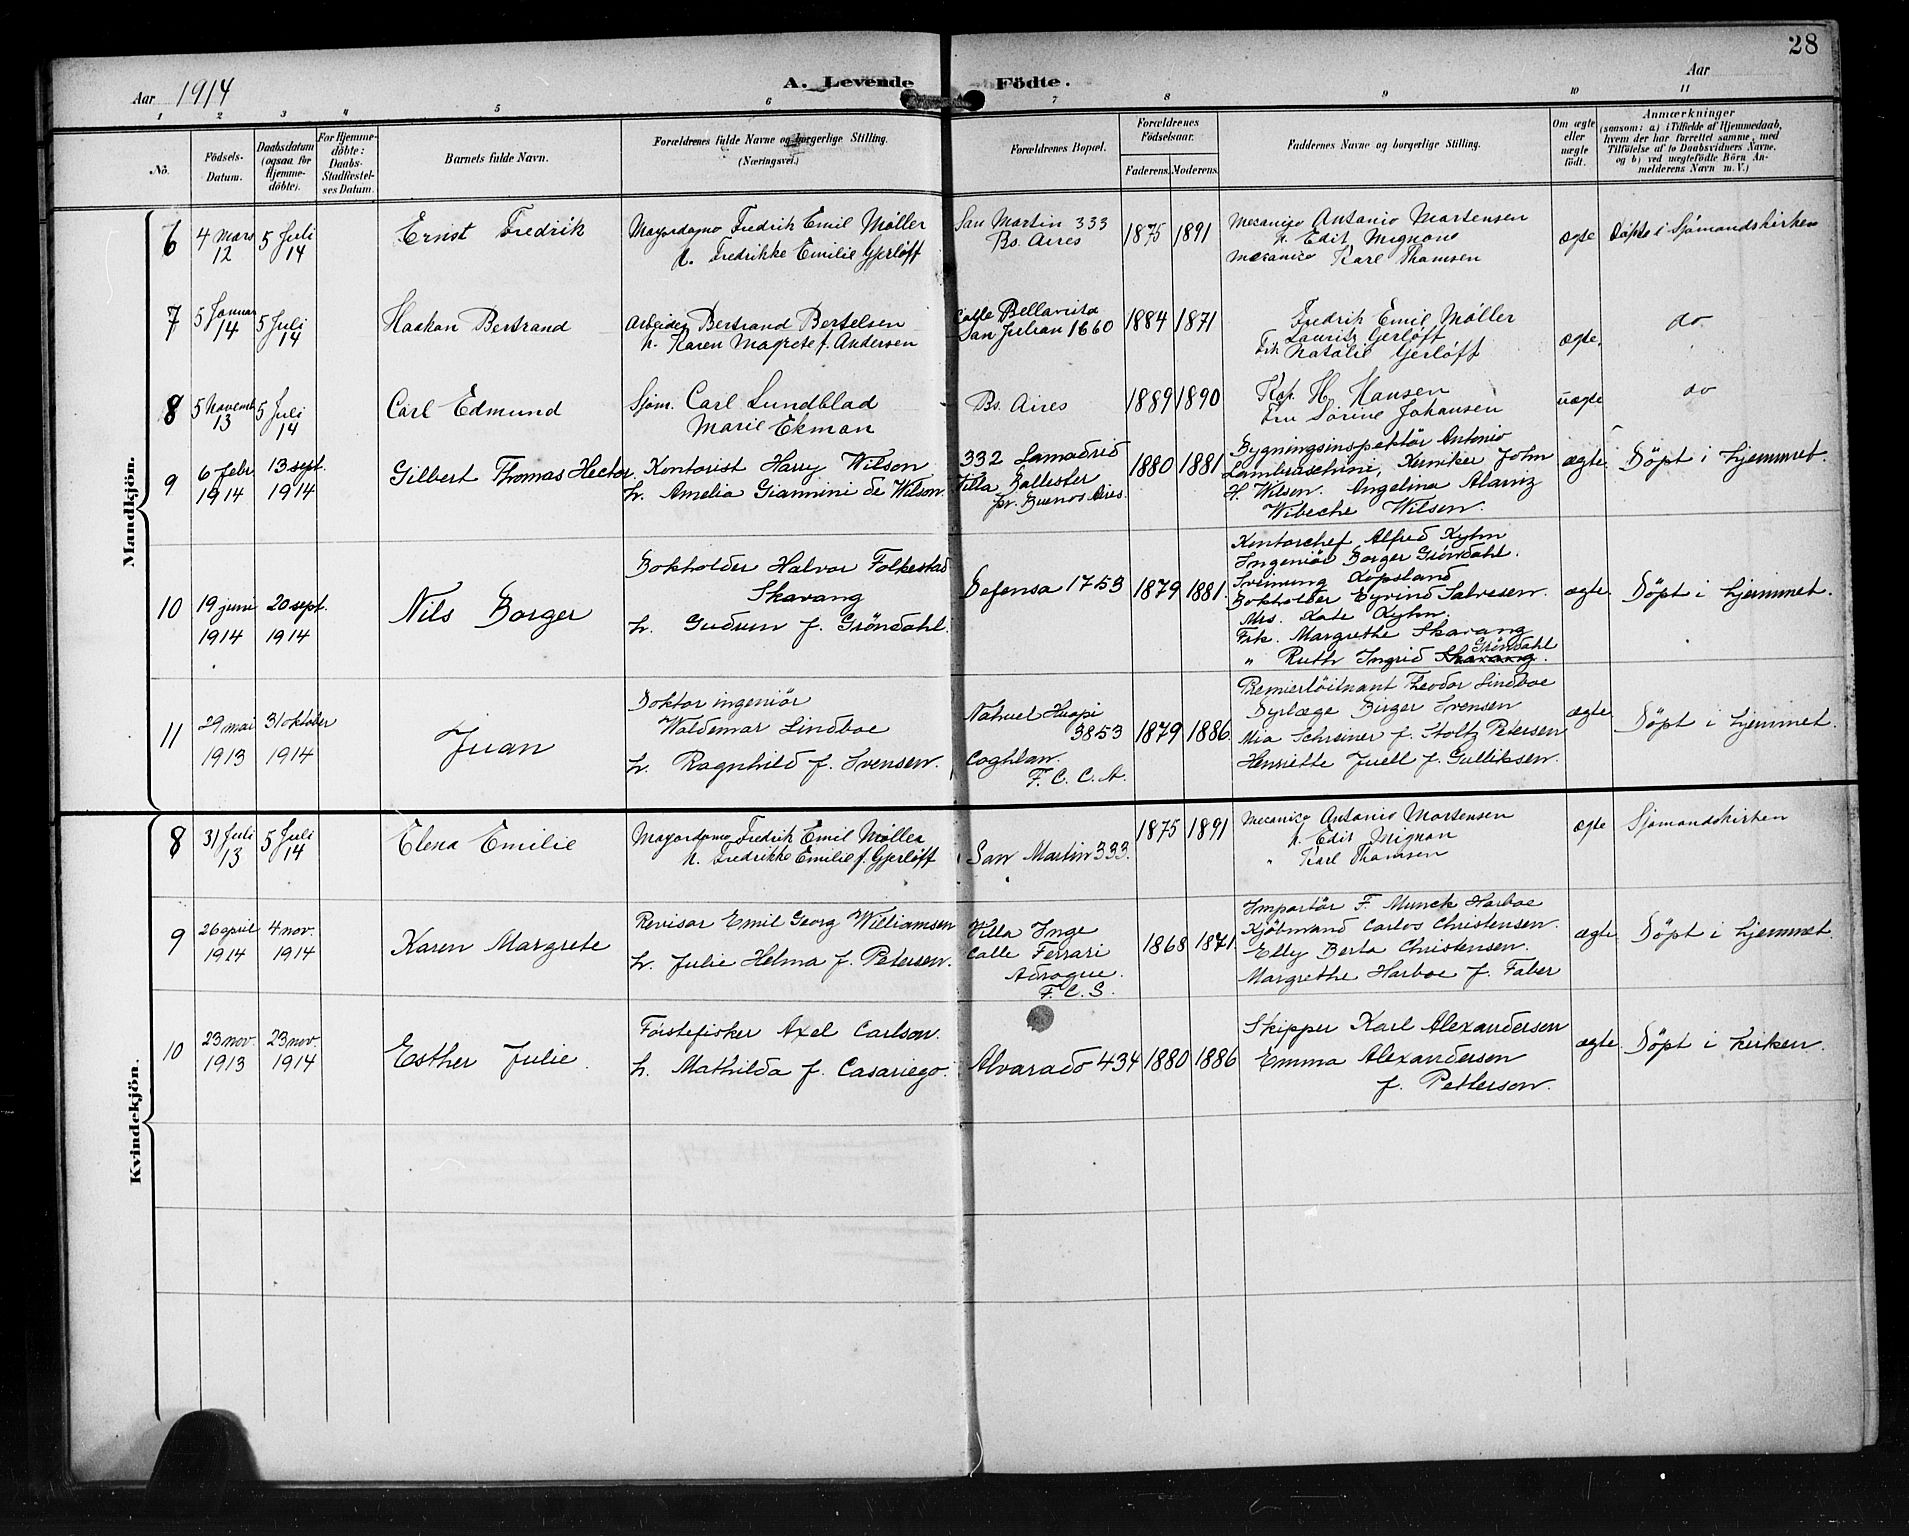 28
Aar 1914 A. Levende Födte. Aar
1 2 3 4 5 6 7 8 9 10 11
No. Födsels-Datum. Daabsdatum (ogsaa for Hjemmedöbte). For Hjemmedöbte: Daabs-Stadfæstelses Datum. Barnets fulde Navn. Forældrenes fulde Navne og borgerlige Stilling. (Næringsvei.) Forældrenes Bopæl. Forældrenes Födselsaar. Faderens. Moderens. Faddernes Navne og borgerlige Stilling. Om ægte eller uægte födt. Anmærkninger (saasom: a) i Tilfælde af Hjemmedaab, hvem der har forrettet samme, med Tilföielse af to Daabsvidners Navne, og b) ved uægtefödte Börn Anmelderens Navn m. V.)
Mandkjön.
6 4 mars 12 5 Juli 14 Ernst Fredrik
Mayordomo Fredrik Emil Møller
h. Fredrikke Emilie Gjerløff
San Martin 333
Bs. Aires
1875 1891
Mecanico Antonio Mortensen
h. Edit Mignon
Mecanico Karl Thomsen
ægte Døpte i Sjømandskirken
7 5 Januar 14 5 Juli 14 Haakon Bertrand
Arbeider Bertrand Bertelsen
h. Karen Magrete f. Andersen
Calle Bellavista
San Julian 1660
1884 1871
Fredrik Emil Møller
Lauritz Gerløft
Frk Natalie Gerløft
ægte. do
8 5 Novemb 13 5 Juli 14 Carl Edmund
Sjøm. Carl Lundblad
Marie Ekman
Bs. Aires
1889 1890
Kap. H. Hansen
Fru Sørine Johansen
uægte do
9 6 febr 1914 13 sept. 1914 Gilbert Thomas Hector
Kontorist Harry Wilson
h. Amelia Giannini de Wilson.
332 Lamadrid
Villa Ballester
pr. Buenos Aires.
1880 1881
Bygningsinspektör Antonio
Lambraschini, Kemiker John
H. Wilson. Angelina Alaniz
Wibeche Wilson.
ægte Döpt i hjemmet.
10 19 juni 1914 20 sept. 1914 Nils Borger
Bokholder Halvor Folkestad
Skavang
h. Gudrun f. Gröndahl.
Defensa 1753
1879 1881.
Kontorchef Alfred Kyhn
Ingeniör Borger Gröndahl.
Sveinung Kopsland
Bokholder Eyvind Salvesen.
Mrs. Kate Kyhn
Frk. Margrethe Skavang
Gröndahl
" Ruth Ingrid Skavang.
ægte Döpt i hjemmet.
11 29 mai 1913 31 oktober 1914 Juan
Doktor ingeniör
Waldemar Lindboe
h. Ragnhild f. Svensen.
Nahuel Huapi
3853
Coghlan.
F. C. C. A.
1879 1886.
Premierlöitnant Theodor Lindboe
Dyrlæge Birger Svensen
Mia Schreiner f. Stoltz Petersen
Henriette Juell f. Gulliksen.
ægte Döpt i hjemmet.
Kvindekjön.
8 31 Juli 13 5 Juli 14 Elena Emilie
Mayordomo Fredrik Emil Møller
h. Fredrikke Emilie f. Gjerløff
San Martin 333.
1875 1891
Mecanico Antonio Mortensen
h. Edit Mignon
" Karl Thomsen
ægte Sjømandskirken
9 26 april 1914 4 nov. 1914 Karen Margrete
Revisor Emil Georg Williamsen
h. Julie Helma f. Petersen.
Villa Inge
Calle Ferrari
Adrogue.
F. C. S.
1868 1871
Importör F. Munck Harboe
Kjöbmand Carlos Christensen.
Elly Berta Christensen.
Margrethe Harboe f. Faber
ægte Döpt i hjemmet.
10 23 nov. 1913 23 nov. 1914 Esther Julie.
Förstefisker Axel Carlson.
h. Mathilda f. Casariego.
Alvarado 434
1880 1886
Skipper Karl Alexandersen
Emma Alexandersen
f. Petterson.
ægte Döpt i kirken.